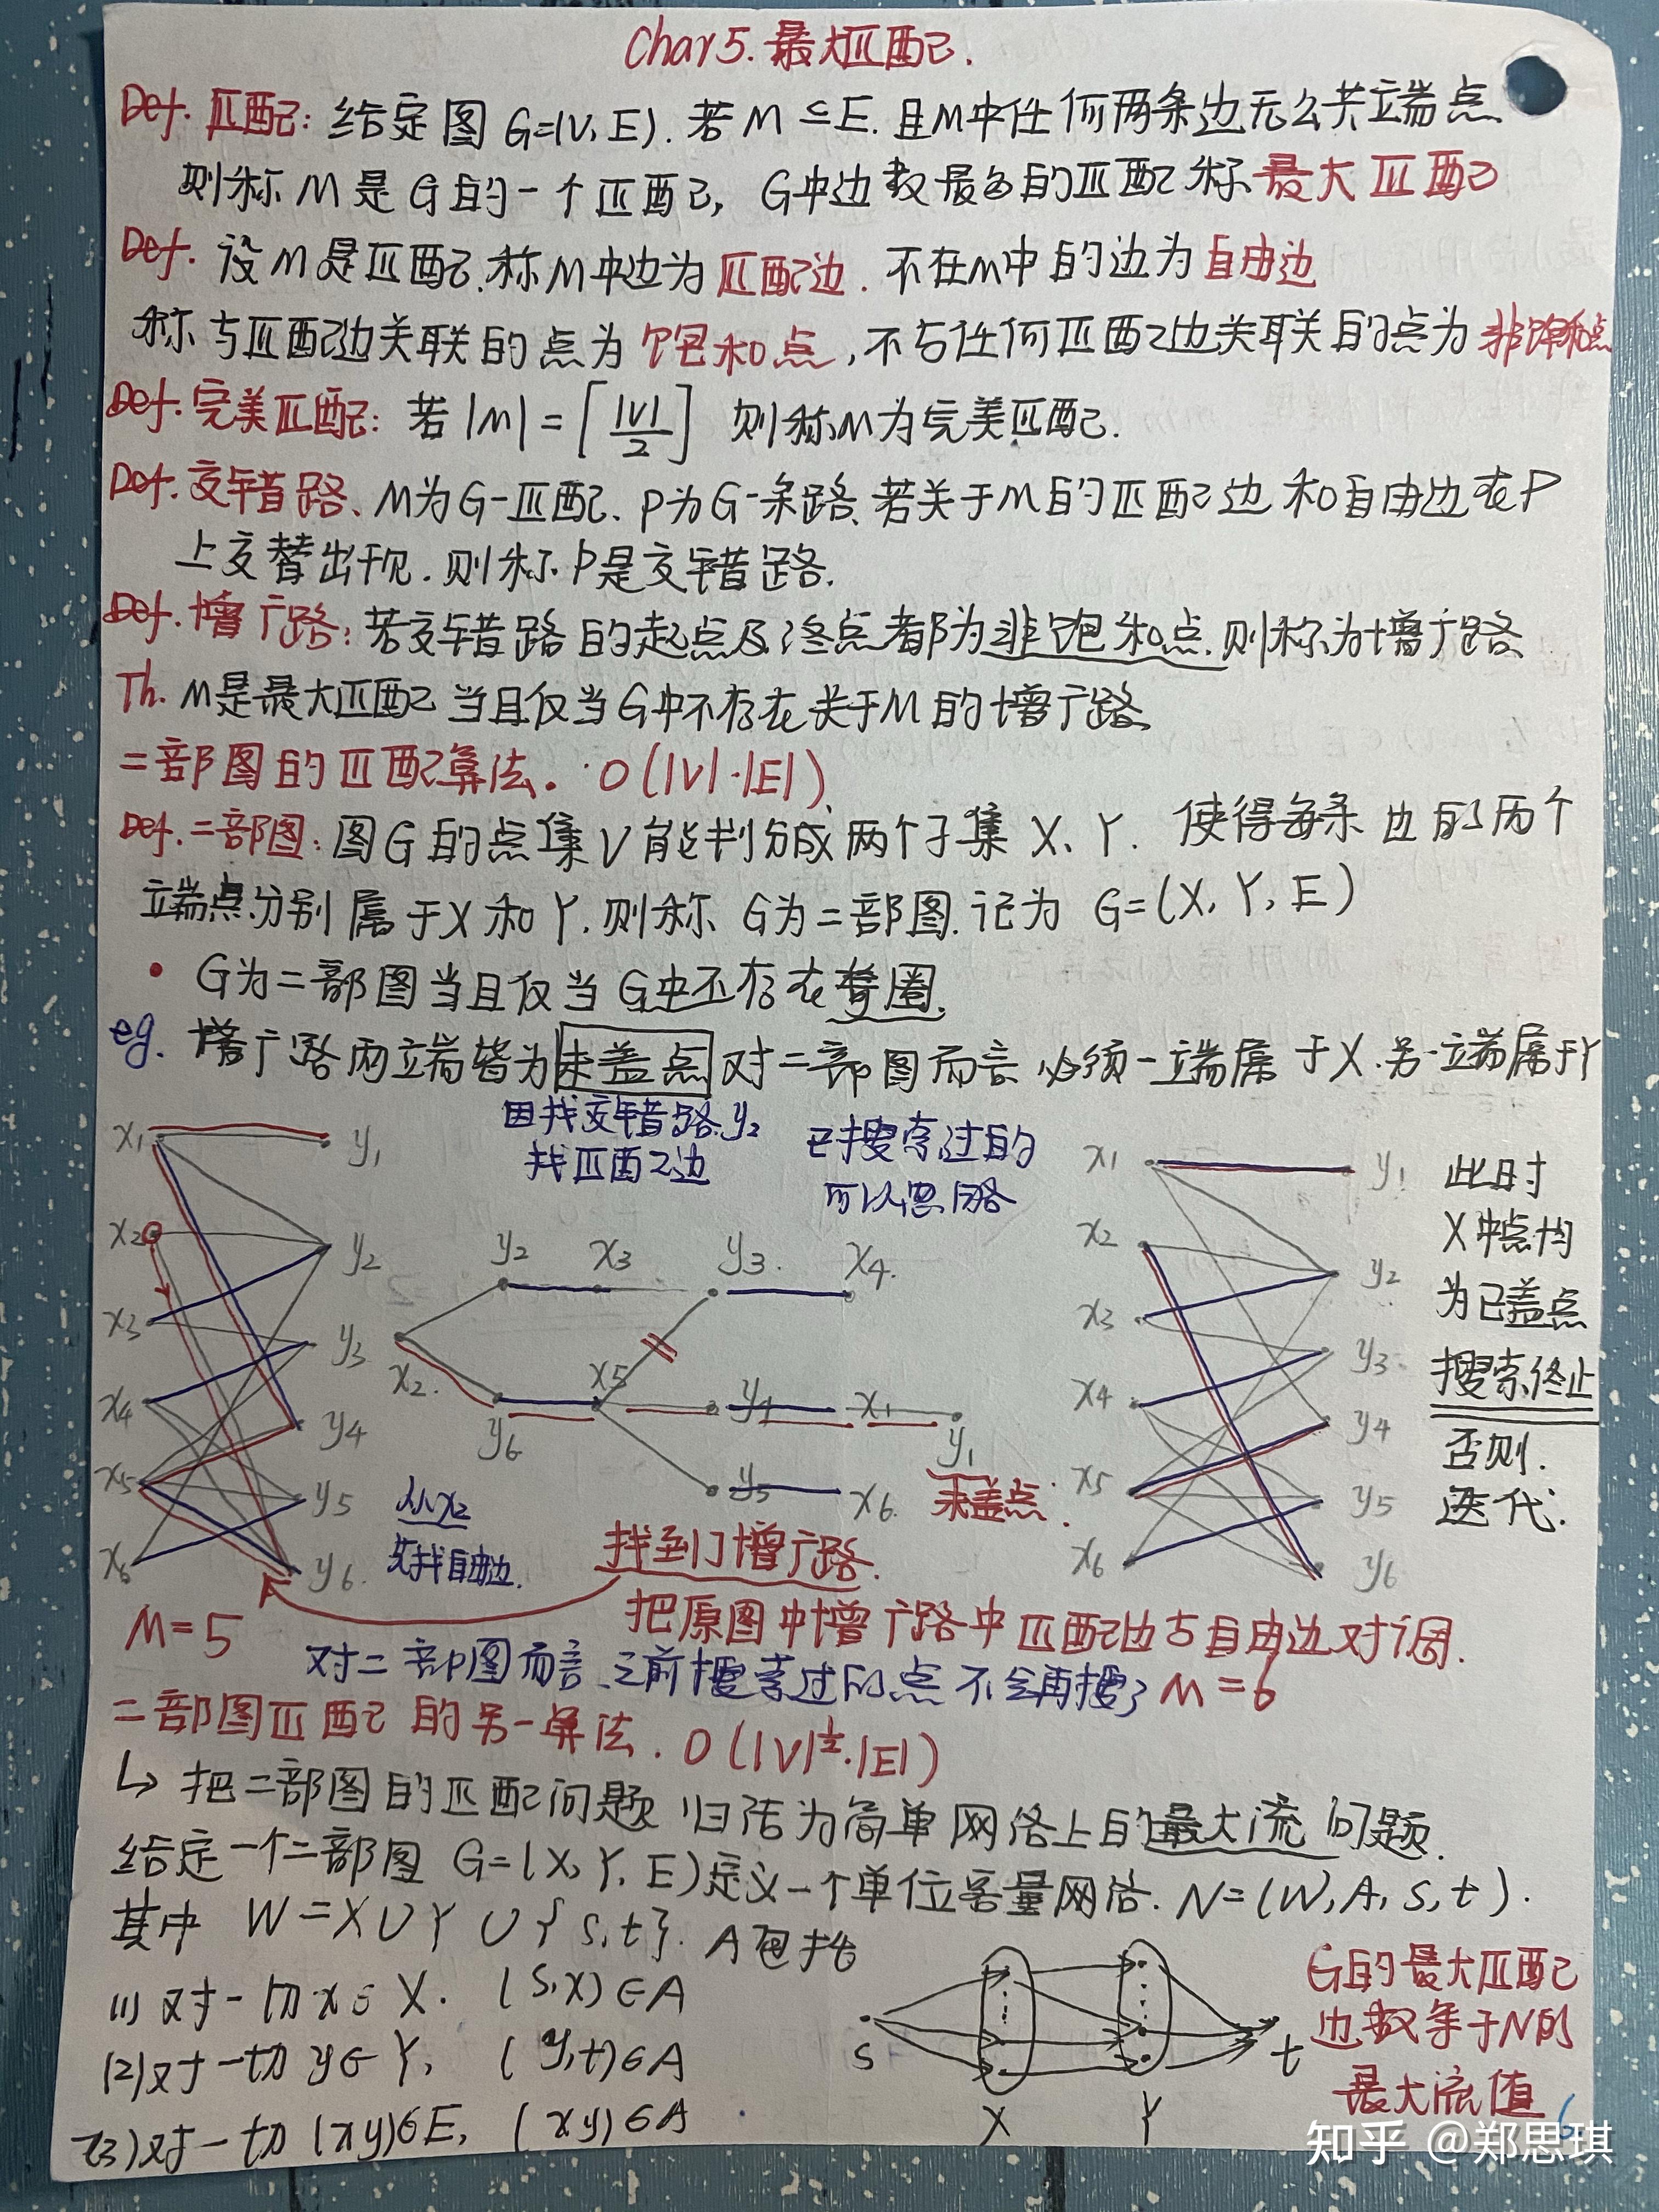 Chap 5. 最大匹配.
Def. 匹配: 给定图 G=(V, E). 若 M ⊆ E. 且M中任何两条边无公共端点
则称 M 是 G 的一个匹配, G中边数最多的匹配称 最大匹配
Def. 设M是匹配.称M中边为 匹配边. 不在M中的边为 自由边
称与匹配边关联的点为 饱和点, 不与任何匹配边关联的点为 非饱和点
Def. 完美匹配: 若 |M| = [|V|/2] 则称M为完美匹配.
Def. 交错路、M为G一匹配、P为G一条路、若关于M的匹配边和自由边在P
上交替出现. 则称P是交错路.
Def. 增广路: 若交错路的起点及终点都为非饱和点.则称为增广路
Th. M是最大匹配当且仅当G中不存在关于M的增广路
二部图的匹配算法. O(|V|·|E|)
Def. 二部图: 图G的点集V能划分成两个子集 X、Y. 使得每条边的两个
端点分别属于X和Y.则称 G为二部图.记为 G=(X, Y, E)
• G为二部图当且仅当G中不存在奇圈.
eg. 增广路两端皆为未盖点对二部图而言必须一端属于X.另一端属于Y
因找交错路.y2
找匹配边
已搜索过的
可以忽略
x1 y1
x2 y2
x3 y3
x4 y4
x5 y5
x6 y6
从x2
先找自由边.
y2 x3 y3 x4
x2 y6 x5 y4 x1 y1
y5 x6
未盖点.
找到了增广路.
x1 y1
x2 y2
x3 y3
x4 y4
x5 y5
x6 y6
此时
X中点均
为已盖点
搜索终止
否则.
迭代.
M=5
把原图中增广路中匹配边与自由边对调.
对二部图而言、之前搜索过的点不会再搜了 M=6
二部图匹配的另一算法. O(|V|^½·|E|)
↳ 把二部图的匹配问题归结为简单网络上的最大流问题.
给定一个二部图 G=(X, Y, E)定义一个单位容量网络. N=(W, A, s, t).
其中 W=X∪Y∪{s,t}. A包括
(1) 对一切x∈X. (s,x)∈A
(2)对一切 y∈Y, (y,t)∈A
(3)对一切 (xy)∈E, (xy)∈A
s t
X Y
G的最大匹配
边数等于N的
最大流值
6
知乎 @郑思琪